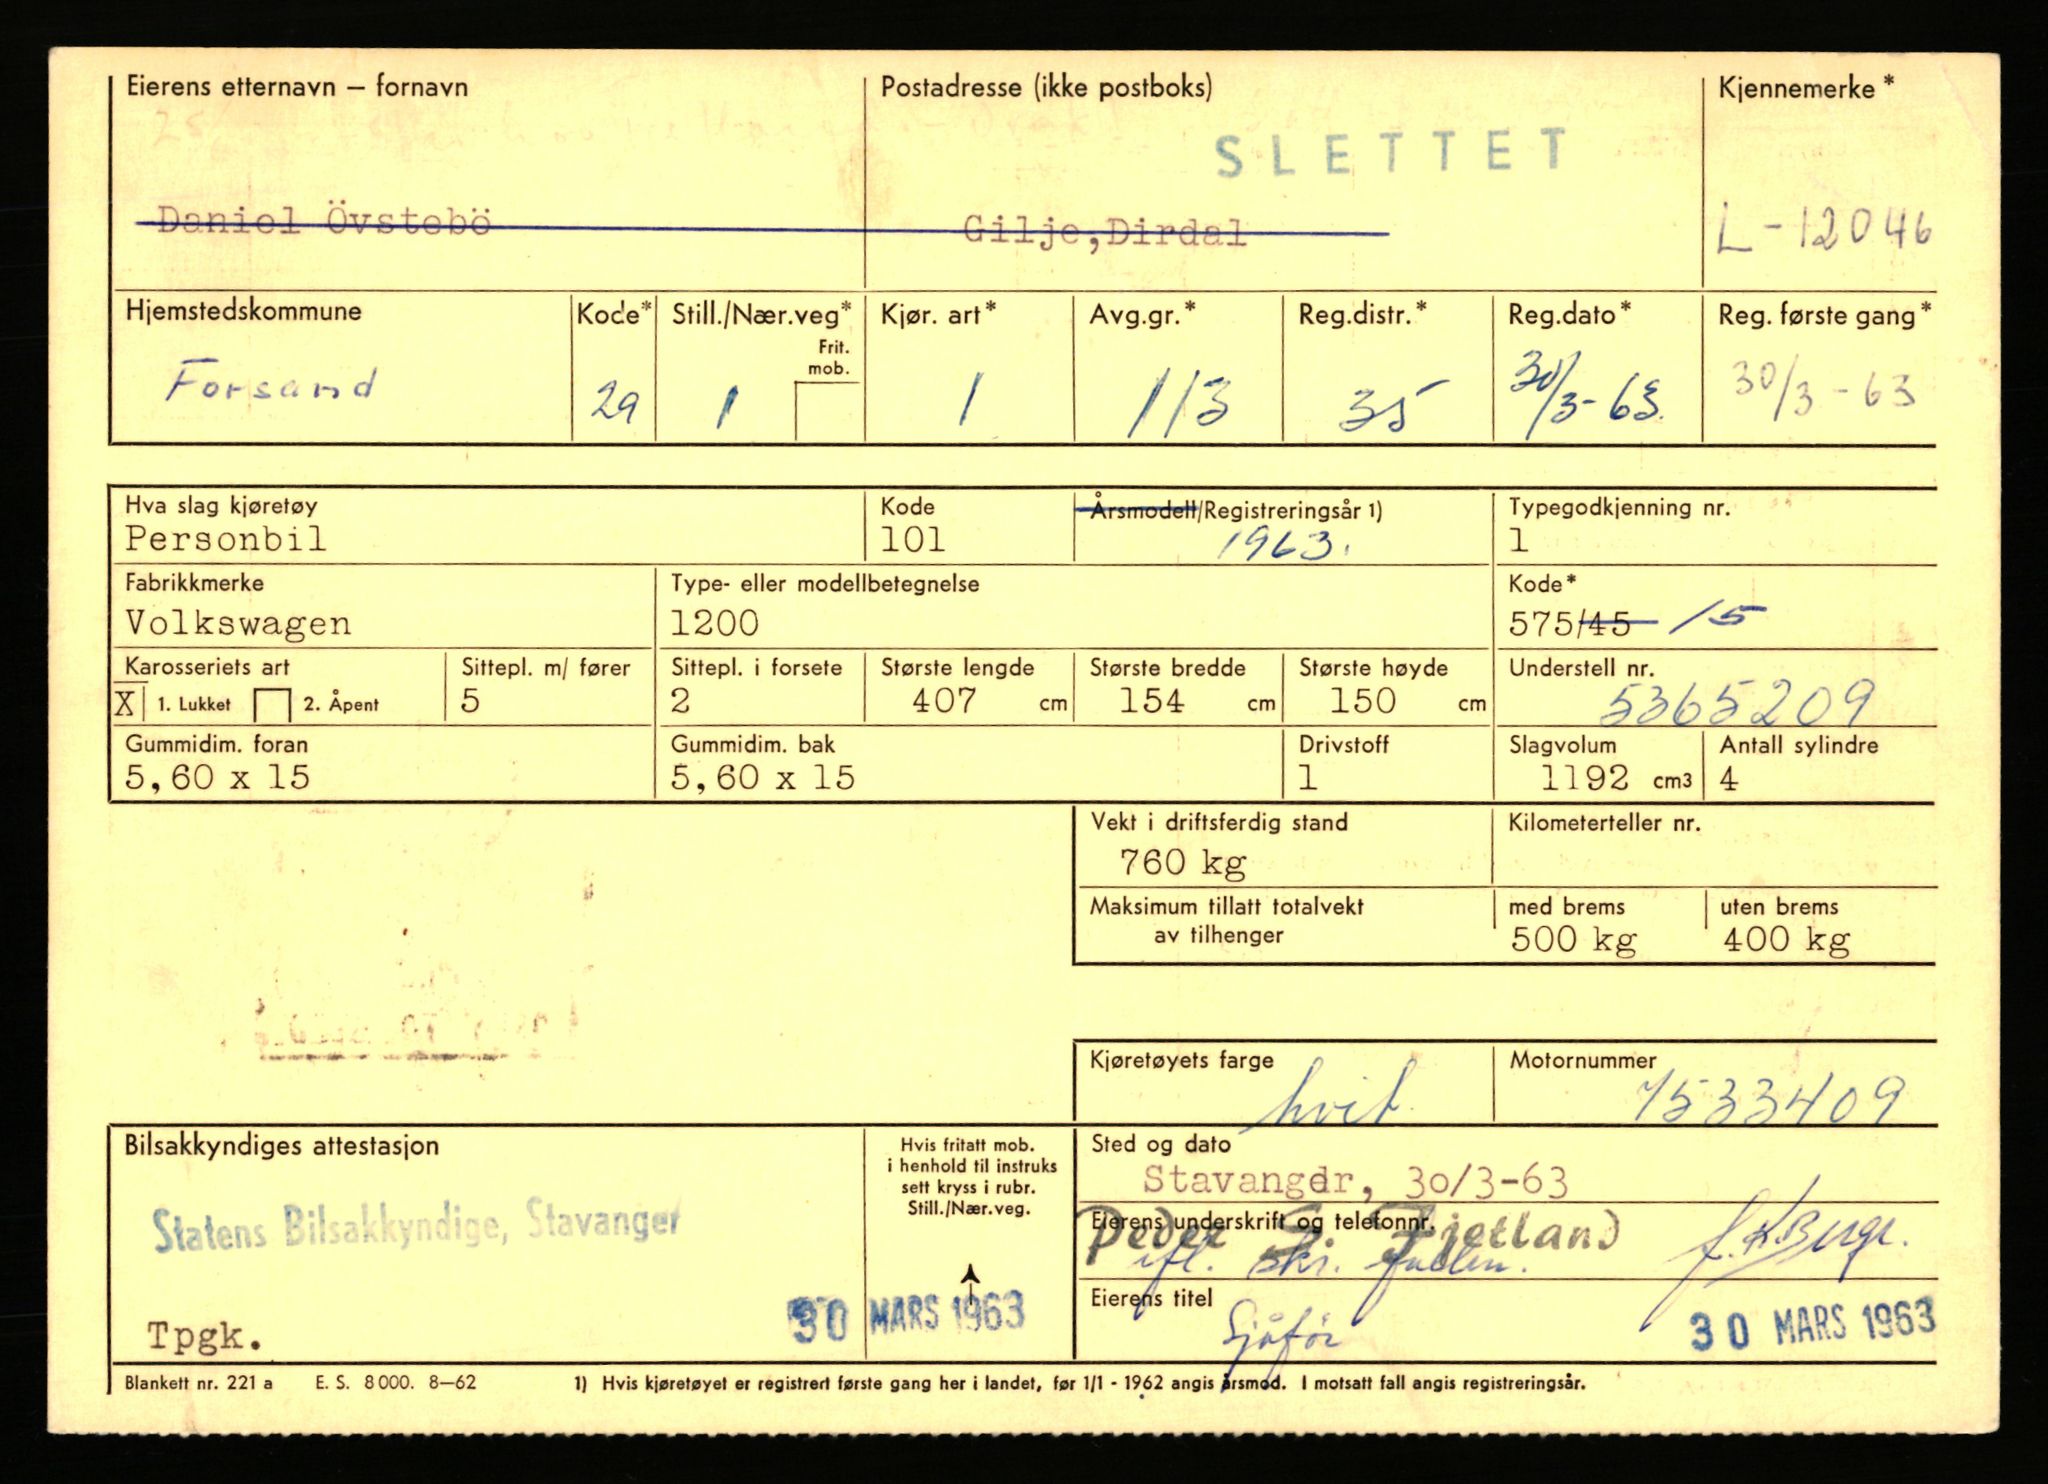 Eierens etternavn – fornavn Postadresse (ikke postboks) Kjennemerke*
SLETTET
Daniel Övstebö Gilje, Dirdal L-12046
Hjemstedskommune Kode* Still./Nær.veg* Kjør. art* Avg.gr.* Reg.distr.* Reg.dato* Reg. første gang*
Frit.
mob.
Forsand 29 1 1 113 35 30/3-63. 30/3-63
Hva slag kjøretøy Kode Årsmodell/Registreringsår 1) Typegodkjenning nr.
Personbil 101 1963. 1
Fabrikkmerke Type- eller modellbetegnelse Kode*
Volkswagen 1200 575/45 15
Karosseriets art Sittepl. m/ fører Sittepl. i forsete Største lengde Største bredde Største høyde Understell nr.
X 1. Lukket 2. Åpent 5 2 407 cm 154 cm 150 cm 5365209
Gummidim. foran Gummidim. bak Drivstoff Slagvolum Antall sylindre
5,60 x 15 5,60 x 15 1 1192 cm3 4
Vekt i driftsferdig stand Kilometerteller nr.
760 kg
Maksimum tillatt totalvekt med brems uten brems
av tilhenger 500 kg 400 kg
Kjøretøyets farge Motornummer
hvit 7533409
Bilsakkyndiges attestasjon Hvis fritatt mob. Sted og dato
i henhold til instruks
sett kryss i rubr.
Still./Nær.veg.
Stavanger, 30/3-63
Statens Bilsakkyndige, Stavanger
Eierens underskrift og telefonnr.
Peder S. Fjetland
ifl. skr. J.K.Berge.
Eierens titel
Sjåfør
Tpgk. 30 MARS 1963 30 MARS 1963
Blankett nr. 221 a E. S. 8000. 8–62 1) Hvis kjøretøyet er registrert første gang her i landet, før 1/1 - 1962 angis årsmod. I motsatt fall angis registreringsår.